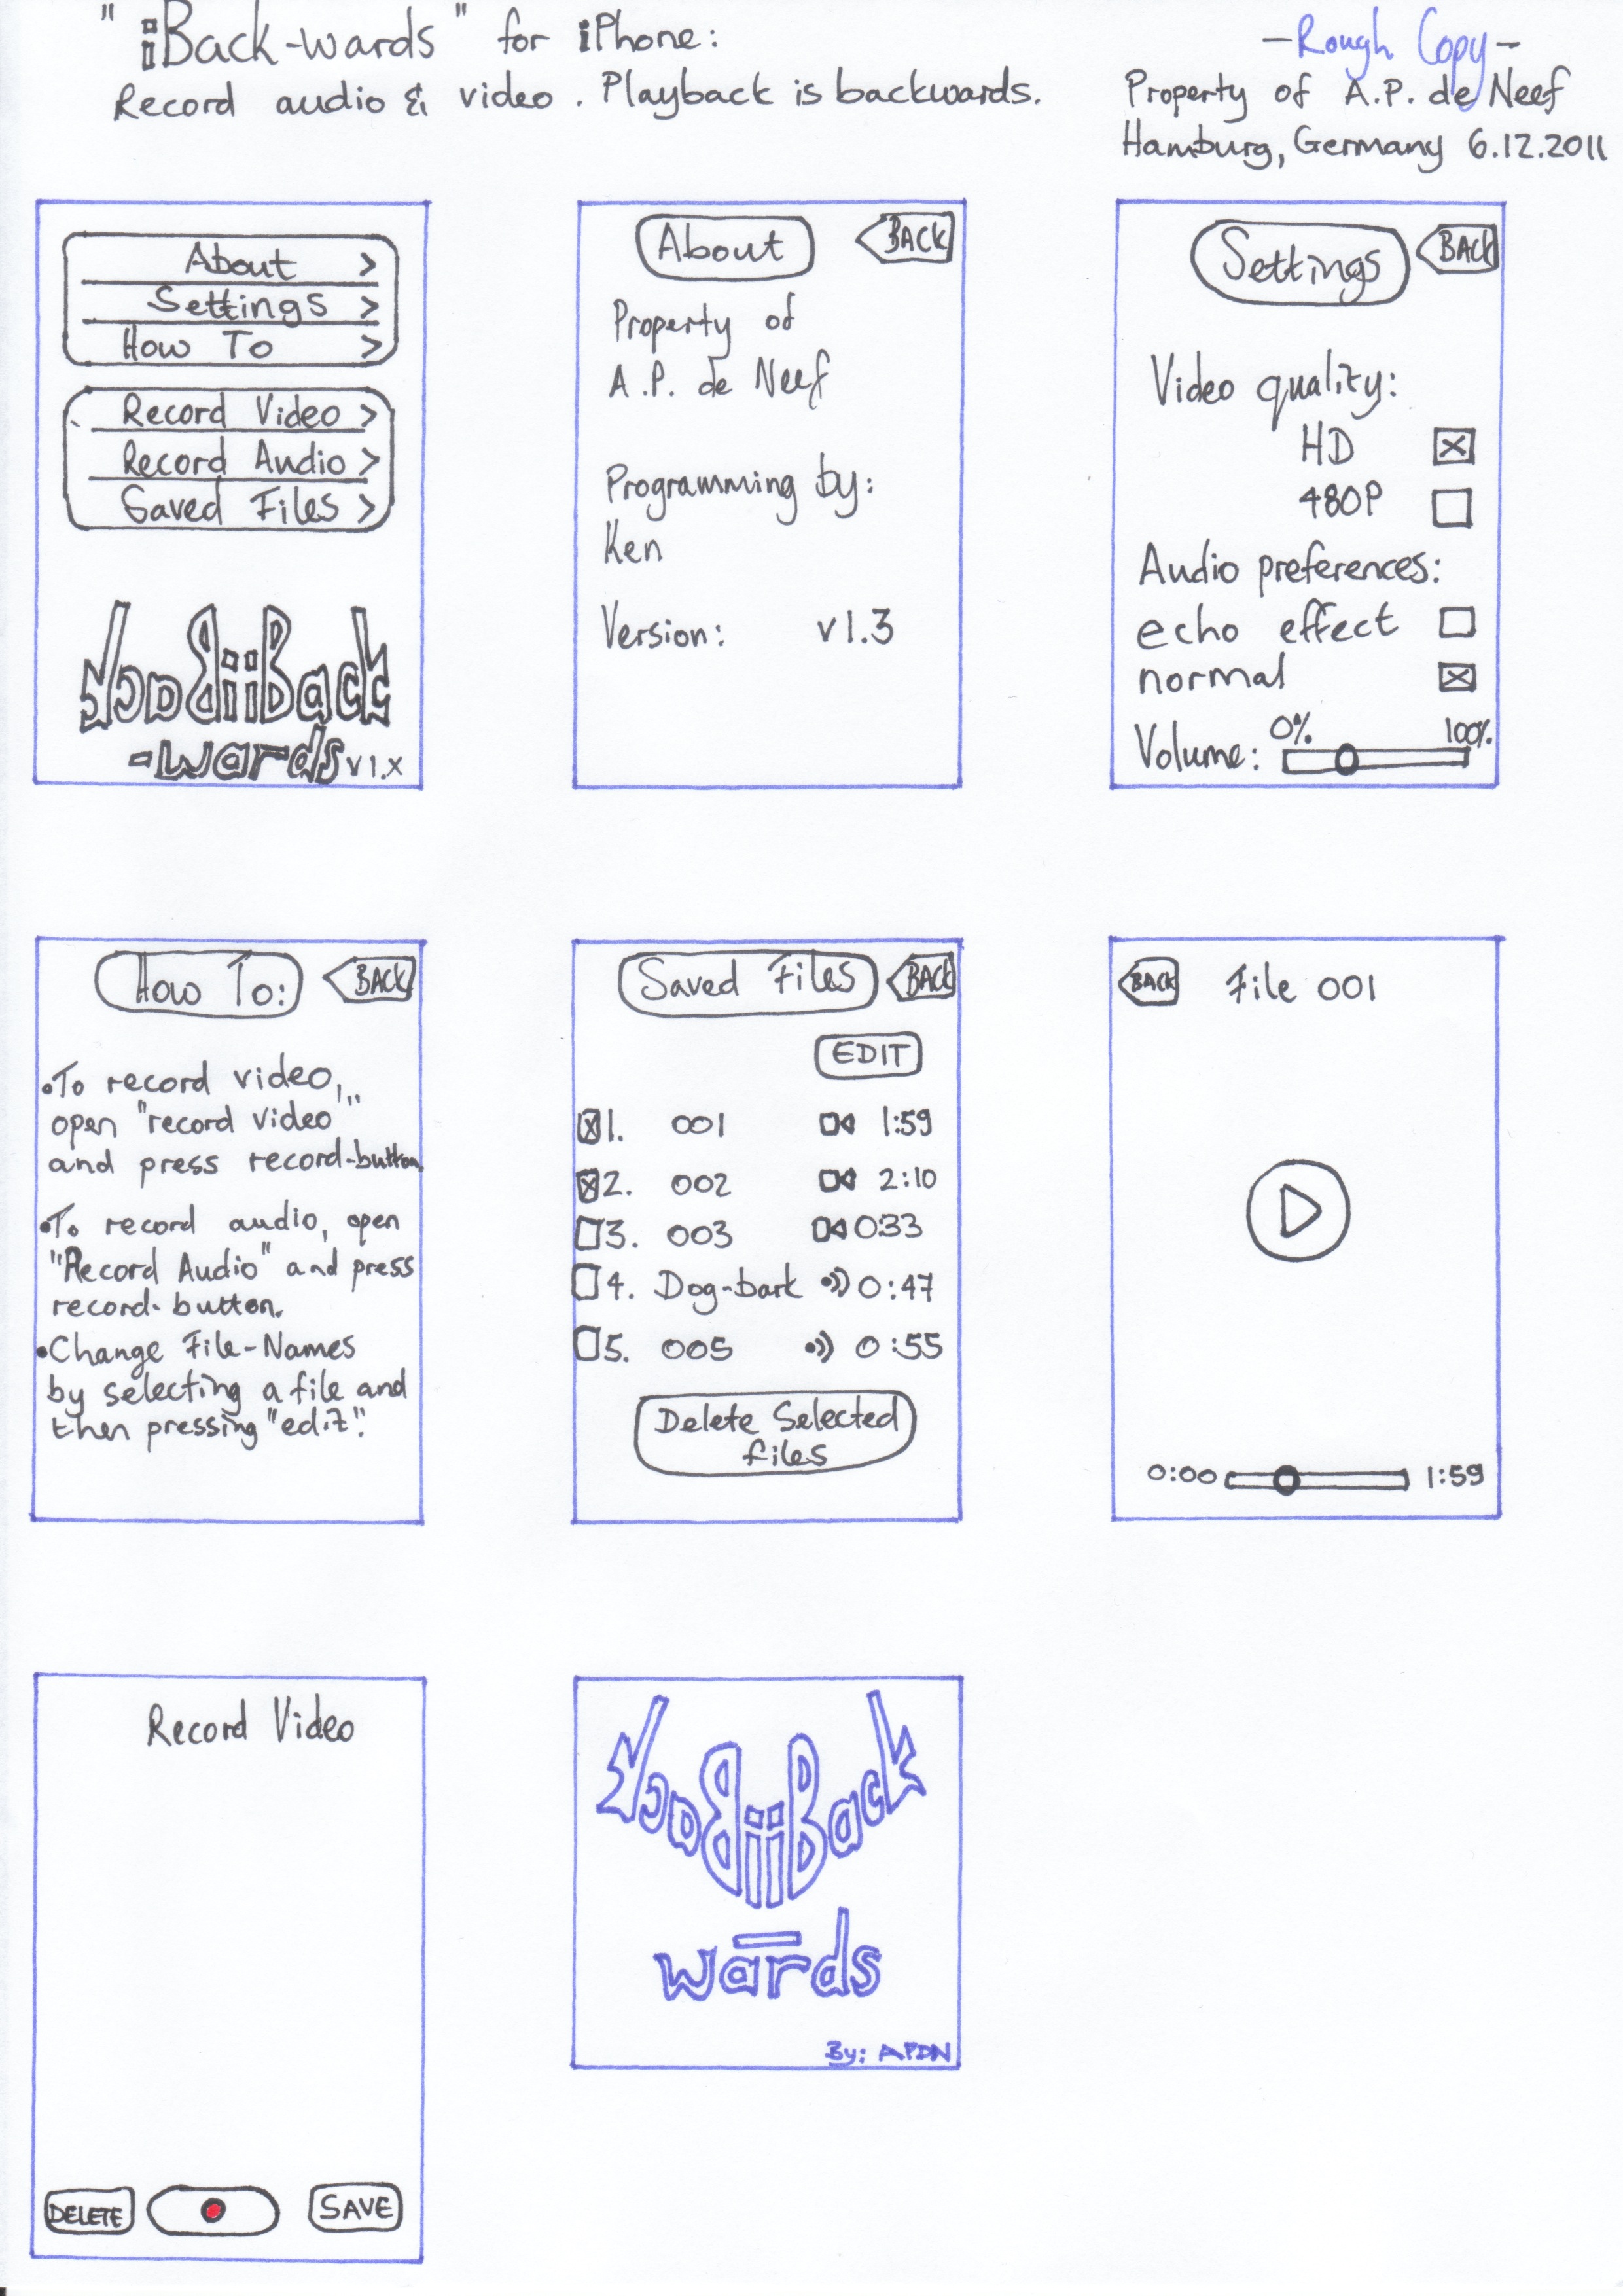 "iBack-wards" for iPhone:
Record audio & video. Playback is backwards.
-Rough Copy-
Property of A.P. de Neef
Hamburg, Germany 6.12.2011
About >
Settings >
How To >
Record Video >
Record Audio >
Saved Files >
kcaBiiBack
-wards v1.x
About
BACK
Property of
A.P. de Neef
Programming by:
Ken
Version: v1.3
Settings
BACK
Video quality:
HD
480P
Audio preferences:
echo effect
normal
0% 100%
Volume:
How To:
BACK
•To record video,
open "record video"
and press record-button
•To record audio, open
"Record Audio" and press
record-button.
•Change File-Names
by selecting a file and
then pressing "edit".
Saved Files
BACK
EDIT
1. 001 1:59
2. 002 2:10
3. 003 0:33
4. Dog-bark 0:47
5. 005 0:55
Delete Selected
files
BACK
File 001
0:00 1:59
Record Video
DELETE
SAVE
kcaBiiBack
-
wards
By: APDN